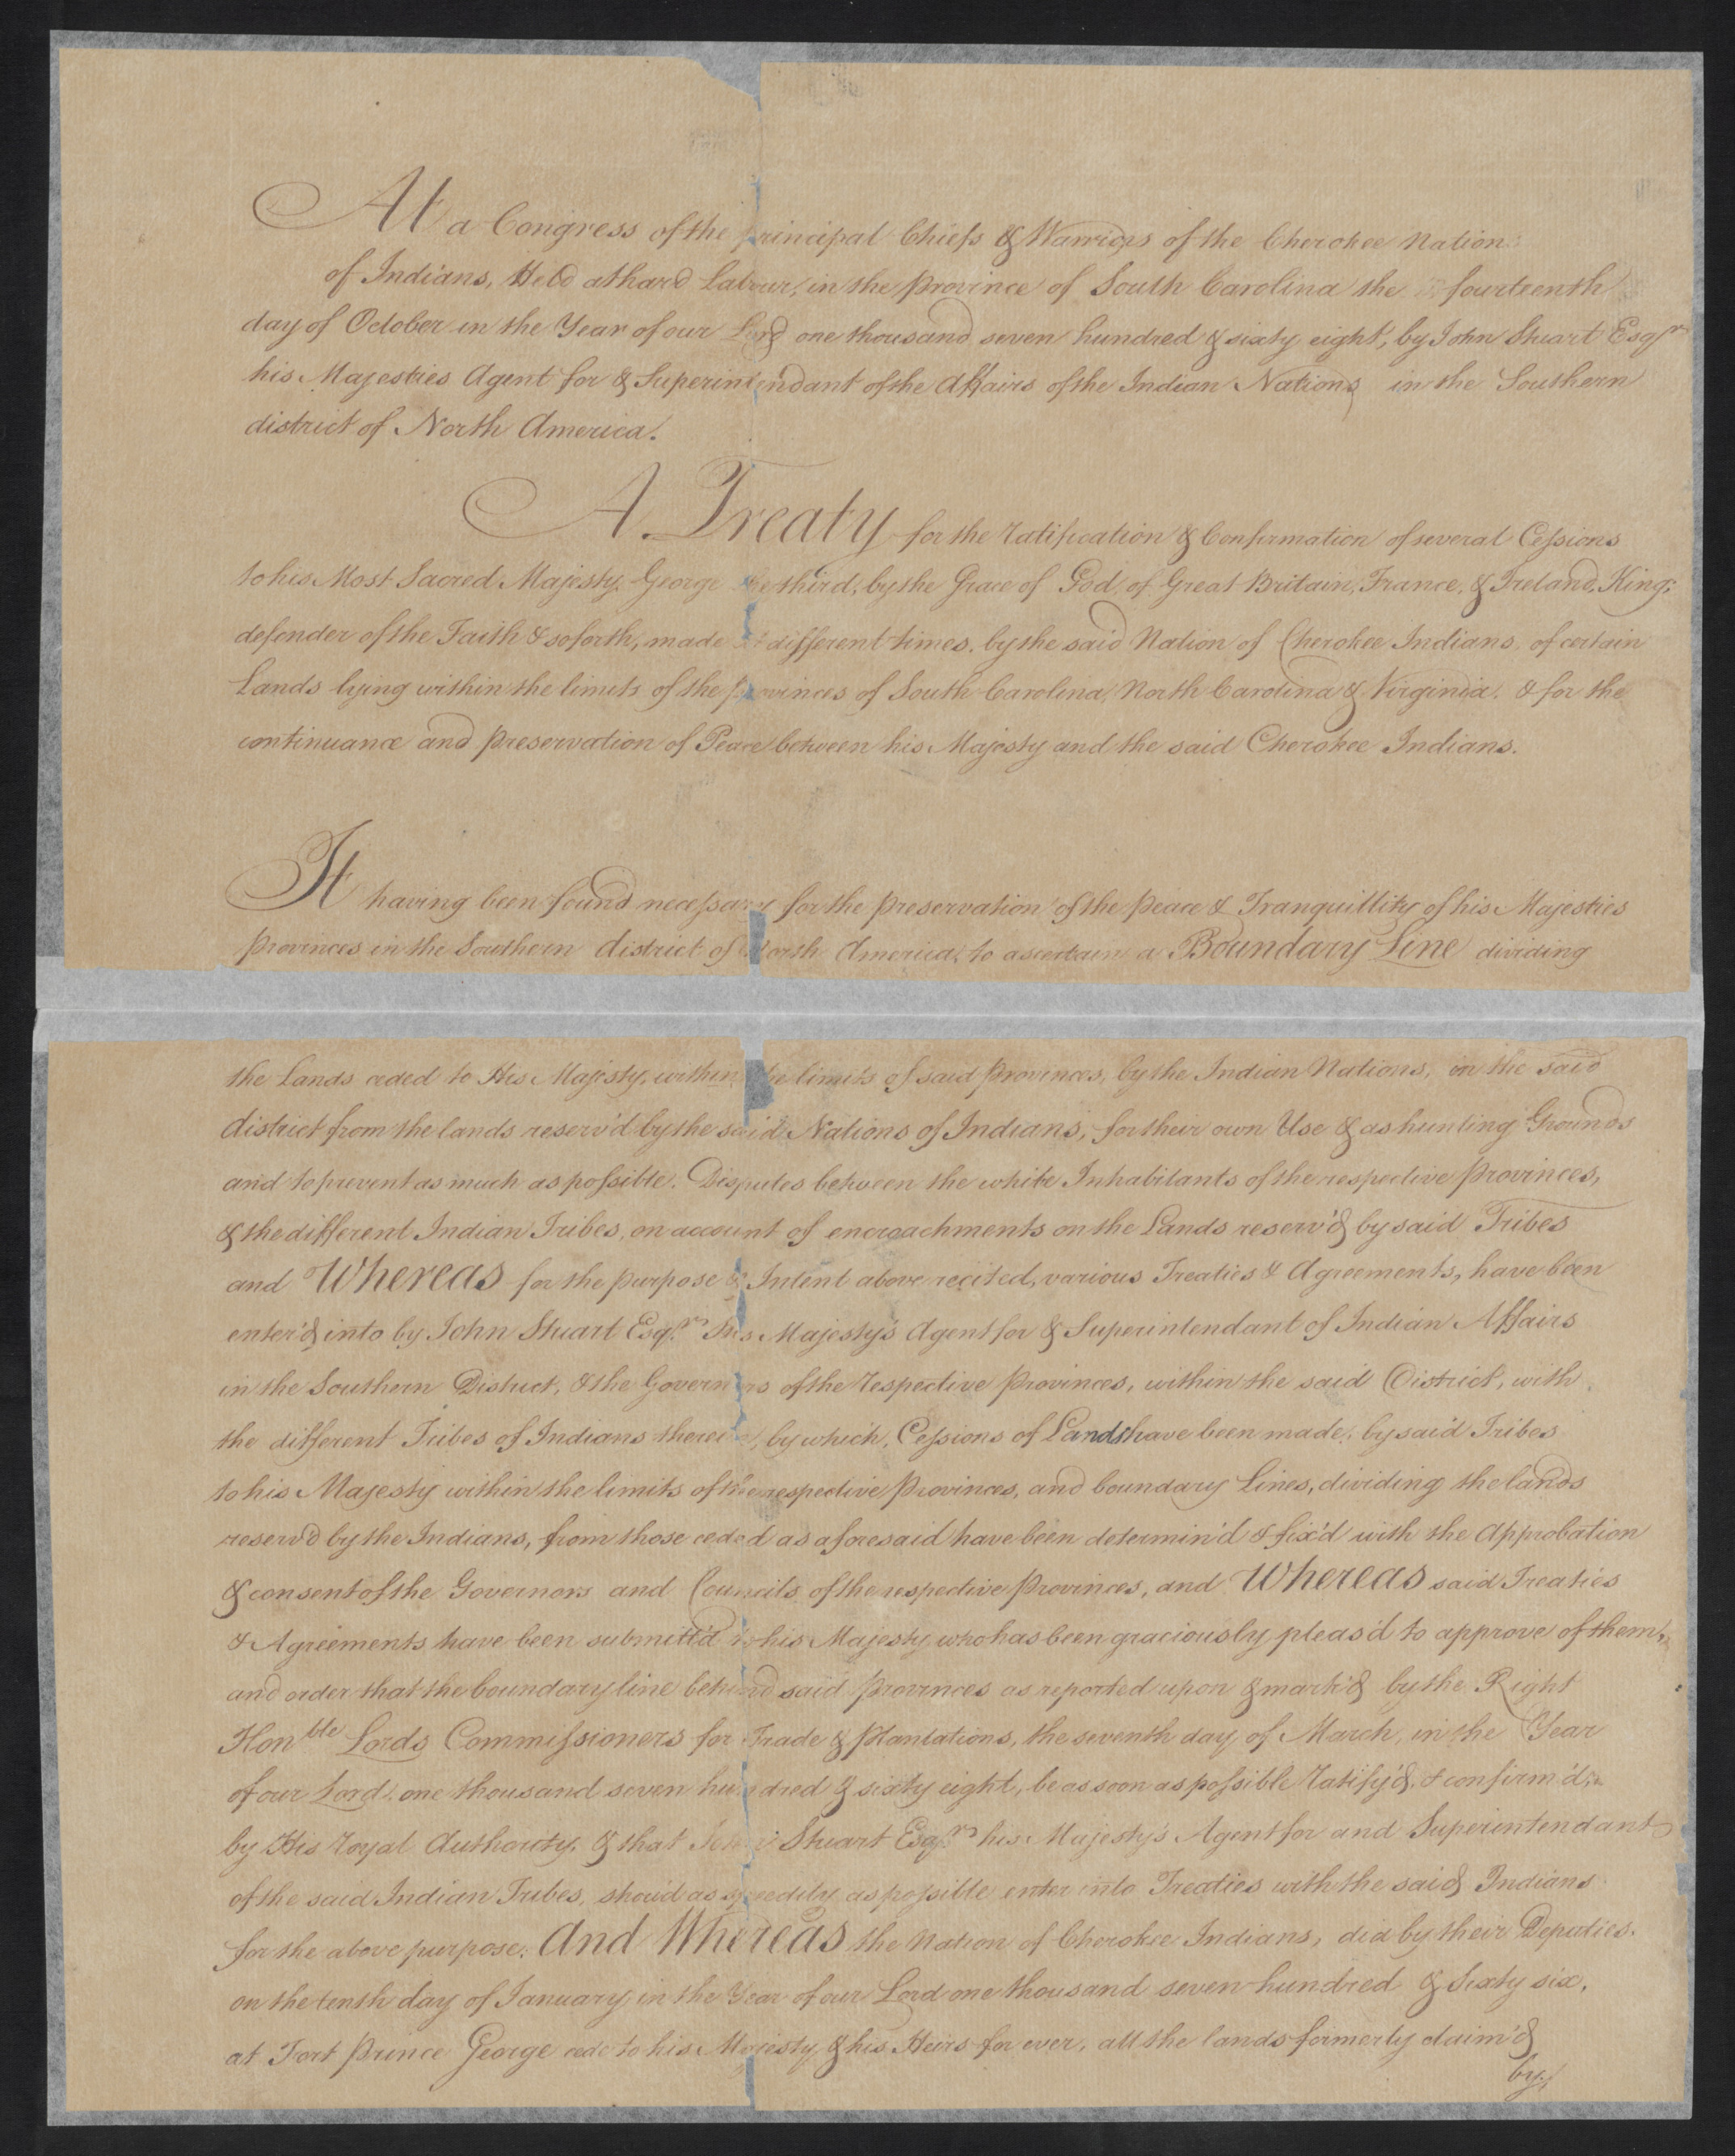 At a Congress of the principal Chiefs & Warriors of the Cherokee Nation
of Indians, Held at hard Labour, in the province of South Carolina the fourteenth
day of October in the Year of our Lord one thousand seven hundred & sixty eight, by John Stuart Esqr
his Majesties Agent for & Superintendant of the Affairs of the Indian Nations in the Southern
district of North America.
A. Treaty for the ratification & Confirmation of several Cessions
to his Most Sacred Majesty, George the third, by the Grace of God, of Great Britain, France, & Ireland, King,
defender of the Faith & soforth, made at different times, by the said Nation of Cherokee Indians, of certain
Lands lying within the limits of the provinces of South Carolina, North Carolina & Virginia. & for the
continuance and preservation of Peace between his Majesty and the said Cherokee Indians.
It having been found necessary for the preservation of the peace & Tranquillity of his Majesties
provinces in the Southern district of North America, to ascertain a Boundary Line dividing
the Lands ceded to His Majesty, within the limits of said provinces, by the Indian Nations, in the said
district from the lands reserv'd by the said Nations of Indians, for their own Use & as hunting Grounds
and to prevent as much as possible. Disputes between the white Inhabitants of the respective provinces,
& the different Indian Tribes, on account of encroachments on the Lands reserv'd by said Tribes
and Whereas for the purpose & Intent above recited, various Treaties & Agreements, have been
enter'd into by John Stuart Esqr. his Majesty's Agent for & Superintendant of Indian Affairs
in the Southern District, & the Governors of the respective provinces, within the said District, with
the different Tribes of Indians therein, by which, Cessions of Lands have been made, by said Tribes
to his Majesty within the limits of the respective provinces, and boundary Lines, dividing the lands
reserv'd by the Indians, from those ceded as aforesaid have been determin'd & fix'd with the Approbation
& consent of the Governors and Councils of the respective provinces, and Whereas said Treaties
& Agreements have been submitted to his Majesty who has been graciously pleas'd to approve of them,
and order that the boundary line behind said provinces as reported upon & mark'd by the Right
Honble Lords Commissioners for Trade & plantations, the seventh day of March, in the Year
of our Lord, one thousand seven hundred & sixty eight, be as soon as possible ratify'd, & confirm'd,
by His royal Authority, & that John Stuart Esqr. his Majesty's Agent for and Superintendant
of the said Indian Tribes, shou'd as speedily as possible enter into Treaties with the said Indians
for the above purpose. And Whereas the Nation of Cherokee Indians, did by their Deputies.
on the tenth day of January, in the Year of our Lord one thousand seven hundred & Sixty six,
at Fort prince George cede to his Majesty & his Heirs for ever, all the lands formerly claim'd
by